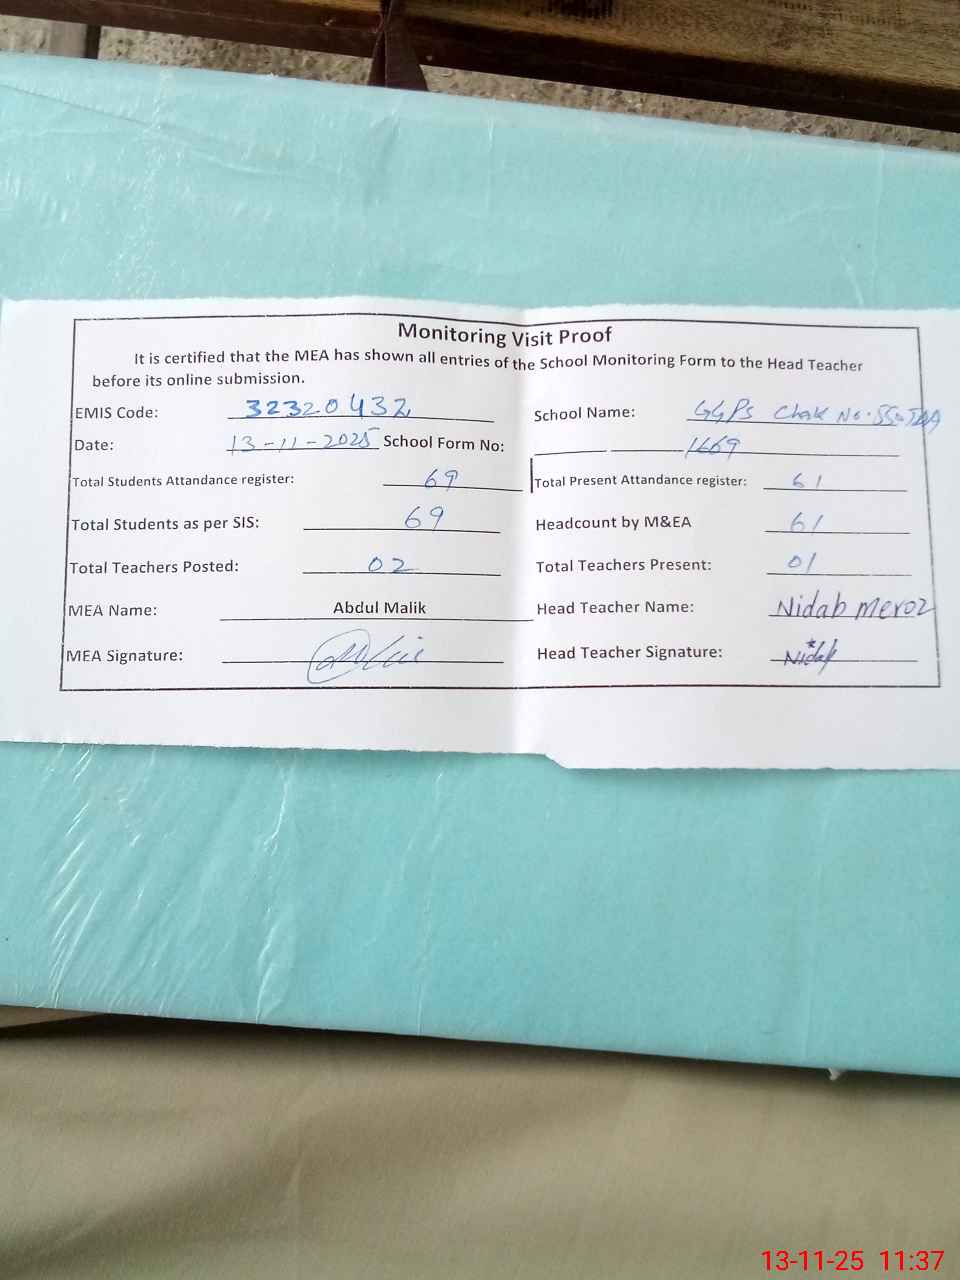 Monitoring Visit Proof
It is certified that the MEA has shown all entries of the School Monitoring Form to the Head Teacher
before its online submission.
EMIS Code: 32320432 School Name: GGPS Chak No.
Date: 13-11-2025 School Form No: 1669
Total Students Attandance register: 69 Total Present Attandance register: 61
Total Students as per SIS: 69 Headcount by M&EA 61
Total Teachers Posted: 02 Total Teachers Present: 01
MEA Name: Abdul Malik Head Teacher Name: Nidab meroz
MEA Signature: Head Teacher Signature: Nidab
13-11-25 11:37